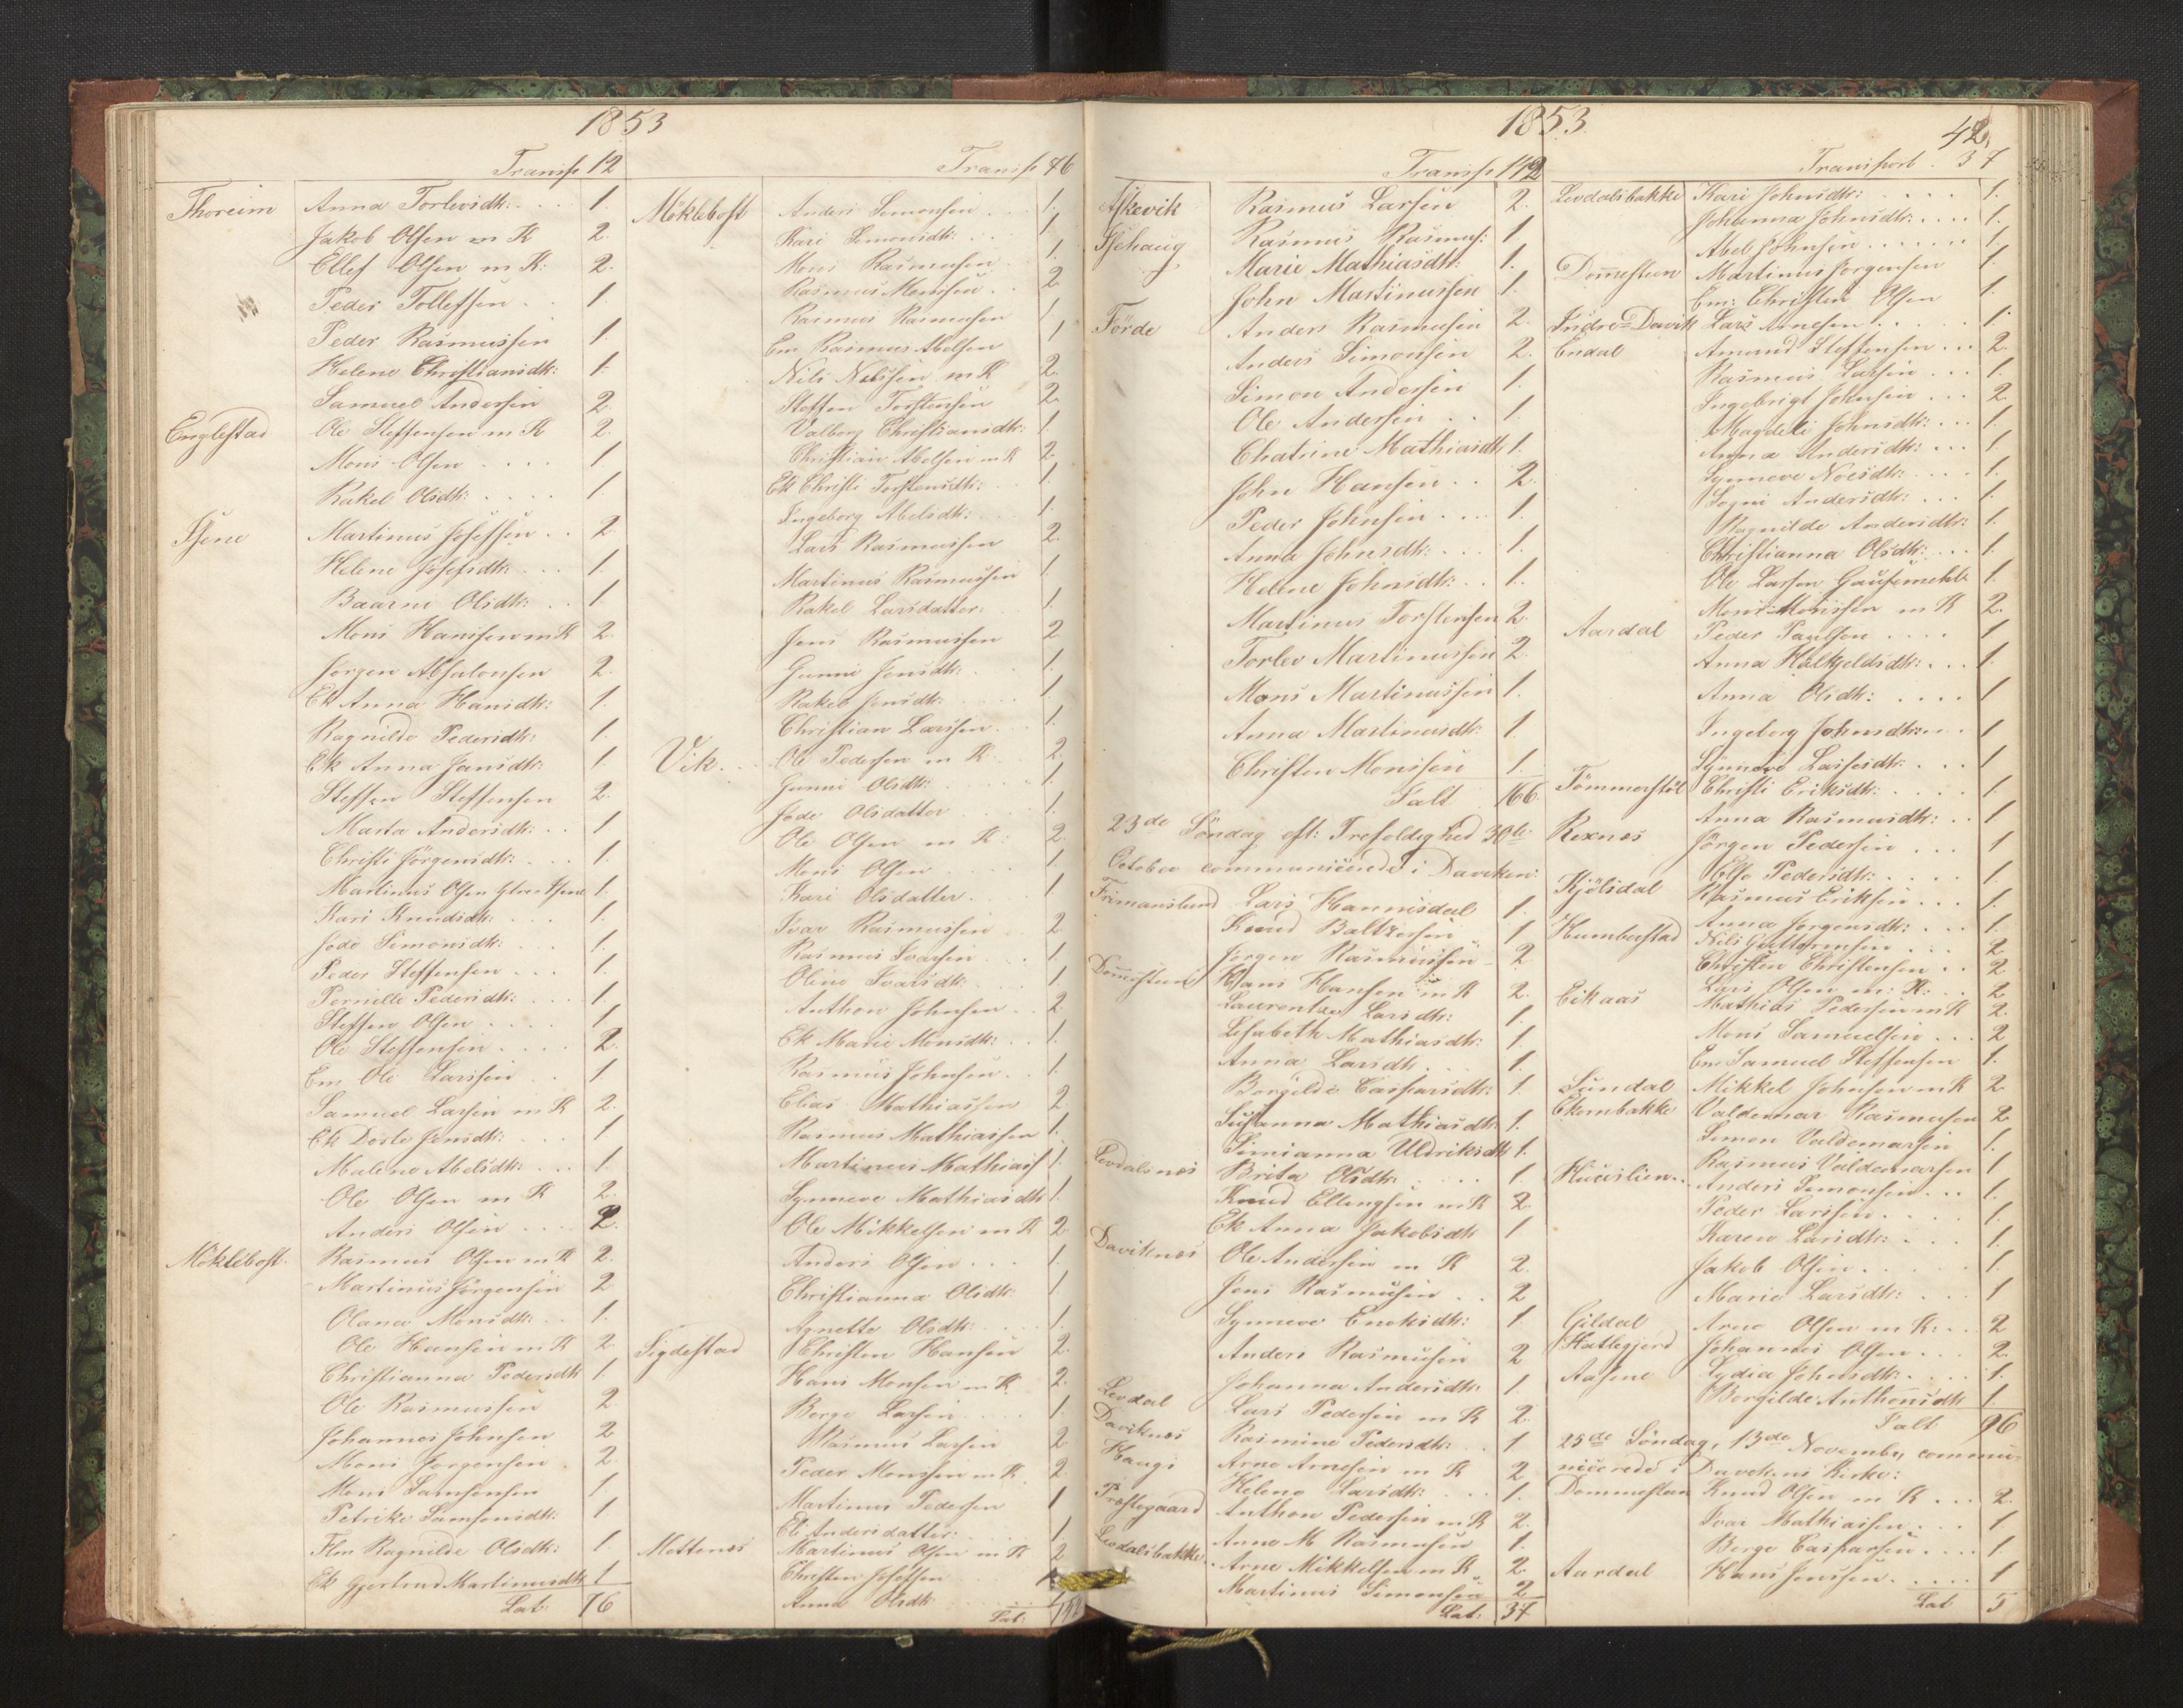 1853
Transp 12
Thoreim Anna Torlevsdtr: 1.
Jakob Olsen m K 2.
Ellef Olsen m K: 2.
Peder Tollefsen 1.
Peder Rasmussen 1.
Helene Christiansdtr: 1.
Samuel Andersen 2
Englestad Ole Steffensen m K 2.
Mons Olsen 1
Rakel Olsdtr: 1
Martinus Josefsen 2
Helene Josefsdtr 1.
Olsdtr: 1
Mons Hansen m K 2.
Jørgen Absalonsen 2
Ek Anna Hansdtr: 1.
Ragnilde Pedersdtr: 1.
Ek Anna Jansdtr: 1.
Steffen Steffensen 2.
Marta Andersdtr: 1
Christi Jørgensdtr: 1.
Martinus Olsen 1.
Kari Knudsdtr: 1.
Simonsdtr: 1.
Peder Steffensen 1.
Pernille Pedersdtr: 1.
Steffen Olsen 1
Ole Steffensen 2.
Em Ole Larssen 1
Samuel Larsen m K 2.
Ek Dorte Jensdtr: 1
Malene Abelsdtr: 1.
Ole Olsen m K 2.
Anders Olsen 2.
Möklebost Rasmus Olsen m K 2.
Martinus Jörgensen 2
Olana Monsdtr: 1.
Ole Hansen m K 2
Christianna Pedersdtr 1.
Ole Rasmussen 2
Johannes Johnsen 2
Mons Jørgensen 2.
Mons Samsonsen 1
Petrike Samsonsdtr: 1.
Ragnilde Olsdtr: 1.
Ek Gjertrud Martinusdtr 1
Lat: 76
Transp 76
Möklebost Anders Simonsen 1.
Kari Simonsdtr: 1
Mons Rasmusen 1.
Rasmus Monsen 2
Rasmus Rasmusen 1
Em Rasmus Abelsen 1
Nils Nilssen m K 2.
Steffen Torstensen 2
Valborg Christiansdtr: 1
Christian Abelsen m K 2.
Ek Christi Torstensdtr: 1.
Ingeborg Abelsdtr: 1.
Lars Rasmussen 2.
Martinus Rasmussen 1
Rakel Larsdatter 1.
Jens Rasmussen 2
Gunni Jensdtr: 1.
Rakel Jensdtr: 1.
Christian Larssen 1.
Vik. Ole Pedersen m K 2
Gunni Olsdtr: 1.
Olsdatter 1.
Ole Olsen m K: 2.
Mons Olsen 1.
Kari Olsdatter 1
Ivar Rasmussen 2
Rasmus Ivarsen 1.
Oline Ivarsdtr. 1
Anthon Johnsen 2
Ek Marie Monsdtr: 1.
Rasmus Johnsen 1.
Elias Mathiassen 2
Rasmus Mathiassen 1.
Martinus Mathiass 1.
Synneve Mathiasdtr 1.
Ole Mikkelsen m K 2
Anders Olsen 1.
Christianna Olsdtr: 1
Agnette Olsdtr: 1.
Sigdestad Christen Hansen 2.
Hans Monsen m K 2.
Berge Larsen 1.
Rasmus Larsen 2
Peder Monssen m K 2.
Martinus Pedersen 1
Eli Andersdatter: 1.
Martinus Olsen m K 2
Christen Josefsen
Anna Olsdtr
Lat: 142
1853.
42
Transp 142
Askevik Rasmus Larsen 2.
Rasmus Rasmus: 1
Marie Mathiasdtr. 1.
John Martinussen 1.
Förde Anders Rasmusen 2.
Anders Simonsen 2.
Simon Andersen 1.
Ole Andersen 1.
Chatrine Mathiasdtr 1.
John Hansen 2.
Peder Johnsen 1.
Anna Johnsdtr: 1.
Helene Johnsdtr: 1.
Martinus Torstensen 2.
Torlev Martinussen 2.
Mons Martinussen 1.
Anna Martinusdtr 1.
Christen Monssen 1.
Talt 166.
23de Söndag eft: Trefoldighed 30te
October communicerede i Daviken:
Frimanslund Lars Hannisdal 1.
Knud Baltzersen 1
Jørgen Rasmussen 2
Hans Hansen m K 2.
Laurentze Larsdtr: 1.
Lisabeth Mathiasdtr: 1.
Anna Larsdtr. 1.
Borgilde Caspersdtr: 1.
Susanna Mathiasdtr 1.
Simianna Uldriksdtr 1.
Levdalsnes Brita Olsdtr: 1.
Knud Ellingsen m K 2.
Ek Anna Jakobsdtr 1
Daviknes Ole Andersen m K 2.
Jens Rasmusen 2
Synneve Enoksdtr: 1
Anders Rasmusen 2
Johanna Andersdtr: 1.
Levdal Lars Pedersen m K 2.
Daviknes Rasmine Pedersdtr: 1
Haugi Arne Arnesen m K 2
Helene Larsdtr: 1.
Præstegaard Anthon Pedersen m K 2.
Anne M Rasmusen 1.
Levdalsbakke Arne Mikkelsen m K 2.
Martinus Simonsen 2
Lat: 37
Transport 37
Levdalsbakke Kari Johnsdtr: 1.
Johanna Johnsdtr: 1.
Abel Johnsen 1.
Domestein Martinus Jørgensen 1
Em: Christen Olsen 1.
Indre-Davik Lars Arnesen 1.
Endal Amund Steffensen 2.
Rasmus Larsen 1.
Ingebrigt Johnsen 2
Magdeli Johnsdtr: 1.
Anna Andersdtr: 1.
Synneve 1.
Andersdtr: 1.
Ragnilde Andersdtr: 1.
Christianna Olsdtr: 1
Ole Larsen 1
Mons Monssen m K 2.
Aardal Peder Paulsen 1
Anna Halkjeldsdtr: 1.
Anna Olsdtr: 1
Ingeborg Johnsdtr: 1
Synneve Larsesdtr: 1
Tömmerstöl Christi Eriksdtr: 1.
Anna Rasmusdtr: 1
Rexnes Jörgen Pedersen 1
Else Pedersdtr: 1.
Kjölsdal Rasmus Eriksen 1.
Anna Jørgensdtr: 1.
Humberstad Nils Guttormsen 2
Christen Christensen 2
Lars Olsen m: K: 2
Eikaas Mathias Pedersen m K 2.
Mons Samuelsen 2
Em Samuel Steffensen 1.
Sundal Mikkel Johnsen m K 2
Valdemar Rasmusen 2
Simon Valdemarsen 1.
Rasmus Valdemarsen 1
Anders Simonsen 1.
Peder Larssen 1.
Karen Larsdtr: 1.
Jakob Olsen 1.
Marie Larsdtr: 1
Gildal Arne Olsen m K: 2
Hatlegjerd Johannes Olsen 2.
Aasene Lydia Johnsdtr: 1.
Borgilde Anthonsdtr 1.
Talt 96
25de Söndag, 13de November, commu-
nicerede i Davikens Kirke:
Dommestein Knud Olsen m K 2.
Ivar Mathiassen 1
Berge Caspersen 1
Aardal Hans Jenssen 1
Lat 5